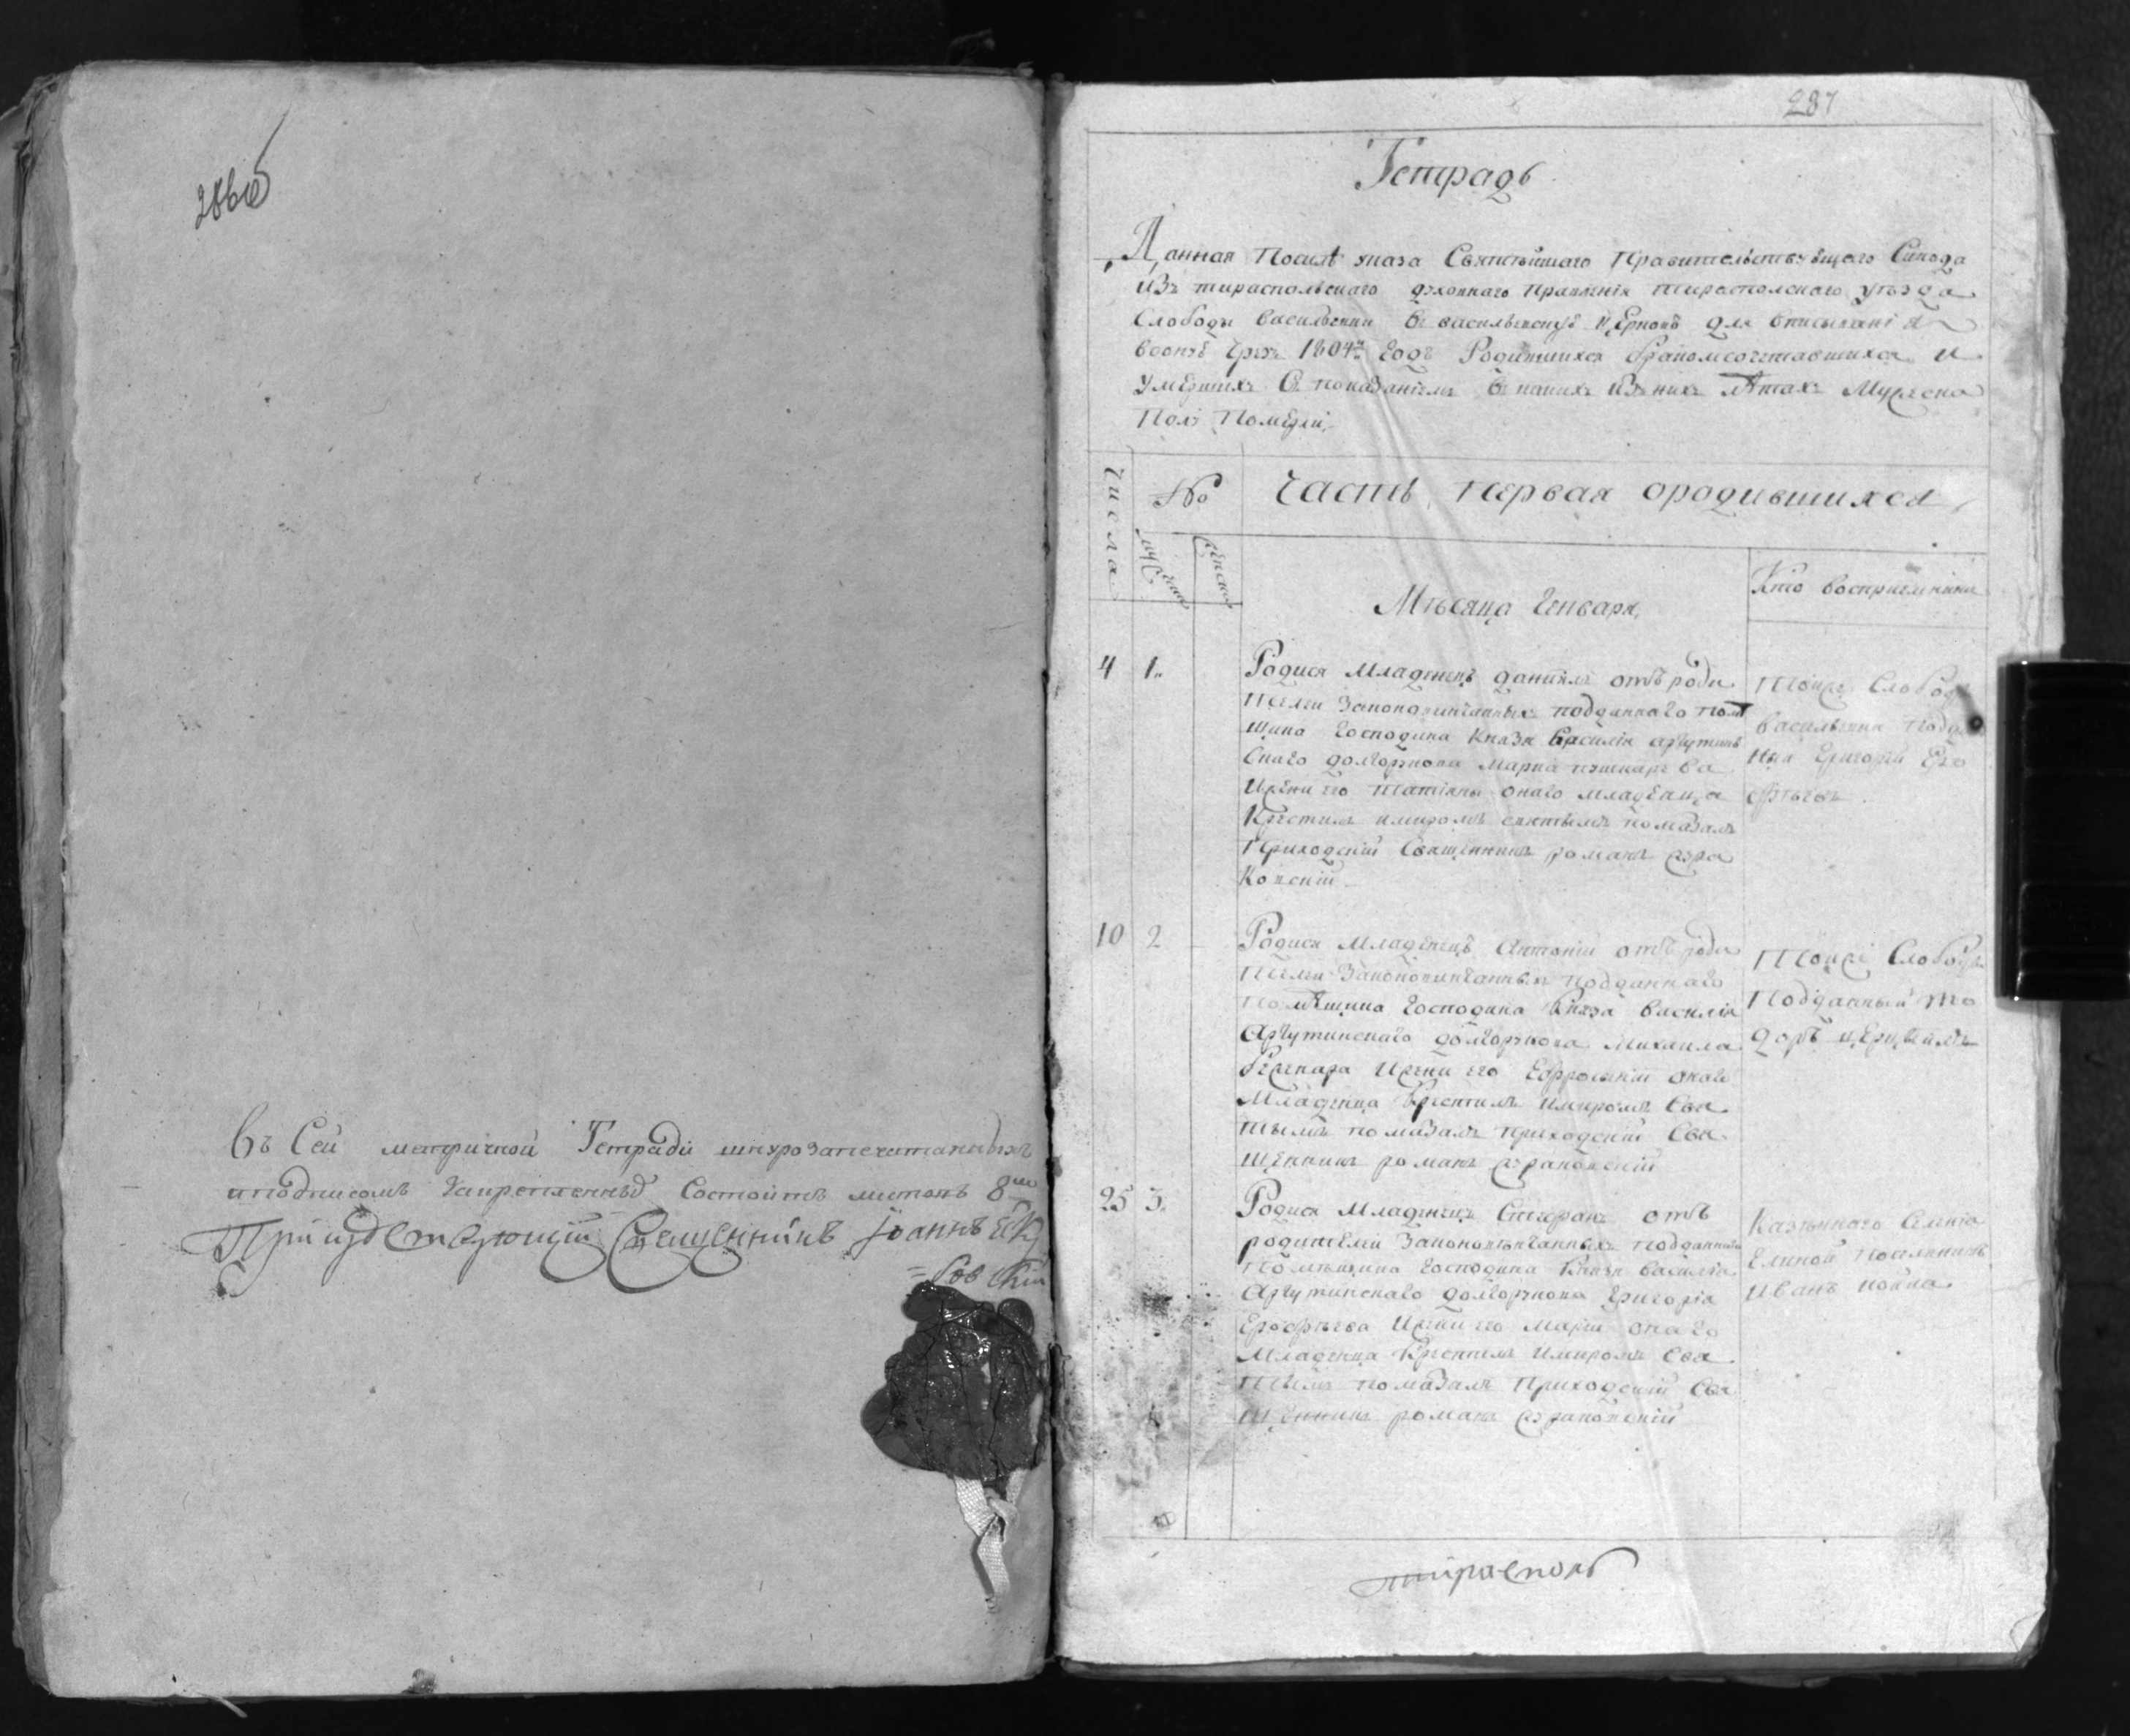 286об
Въ Сей метричной Тетради шнурозапечатанныхъ
Состоитъ листовъ 8
Священникъ Іоаннъ
237
Тетрадь
Данная После указа Святейшаго Правительствующаго Синода
Изъ тираспольскаго духовнаго правленія тираспольскаго уѣзда
Слободы Василевки Въ васильевскую церковь для вписыванія
воонъю чрезъ 1804й годъ Родившихся бракомсочетавшихся и
умершихъ Съ показаніемъ въ какихъ изъ нихъ лѣтахъ Мужеска
Полу Померли,
Числа
№
Часть, первая ородившихся
мужска
женска
Мѣсяца Генваря,
Кто восприемники
4 1.
Родися Младенецъ даніилъ отъ роди
телей Законовинчанныхъ подданнаго помѣ
щика господина Князя Василія аргутин
Скаго долгорукова Марка
И жени его татіяны онаго младенца
Крестилъ имиромъ святымъ помазалъ
Приходскій Священникъ романъ
ковскій
Тоиже Слободы
Василевки
Григорій
10 2
Родися Младенецъ Антоній отъ роди
телей Законовинчанныхъ подданнаго
помѣщика Господина Князя Василія
Аргутинскаго долгорукова Михаила
И жени его Ефросиніи онаго
Младенца Крестилъ имиромъ Свя
тымъ помазалъ приходскій Свя
щенникъ романъ
Тоиже Слободы
Подданный Фео
доръ
25 3.
Родися Младенецъ Стефанъ отъ
родителей Законовѣнчанныхъ подданнаго
Помѣщика Господина Князя Василія
Аргутинскаго долгорукова Григорія
Ерофѣева И жени его Маріи онаго
Младенца Крестилъ Имиромъ Свя
тымъ помазалъ Приходскій Свя
щенникъ романъ
Казѣннаго Селенія
поселянинъ
Иванъ
тирасполь